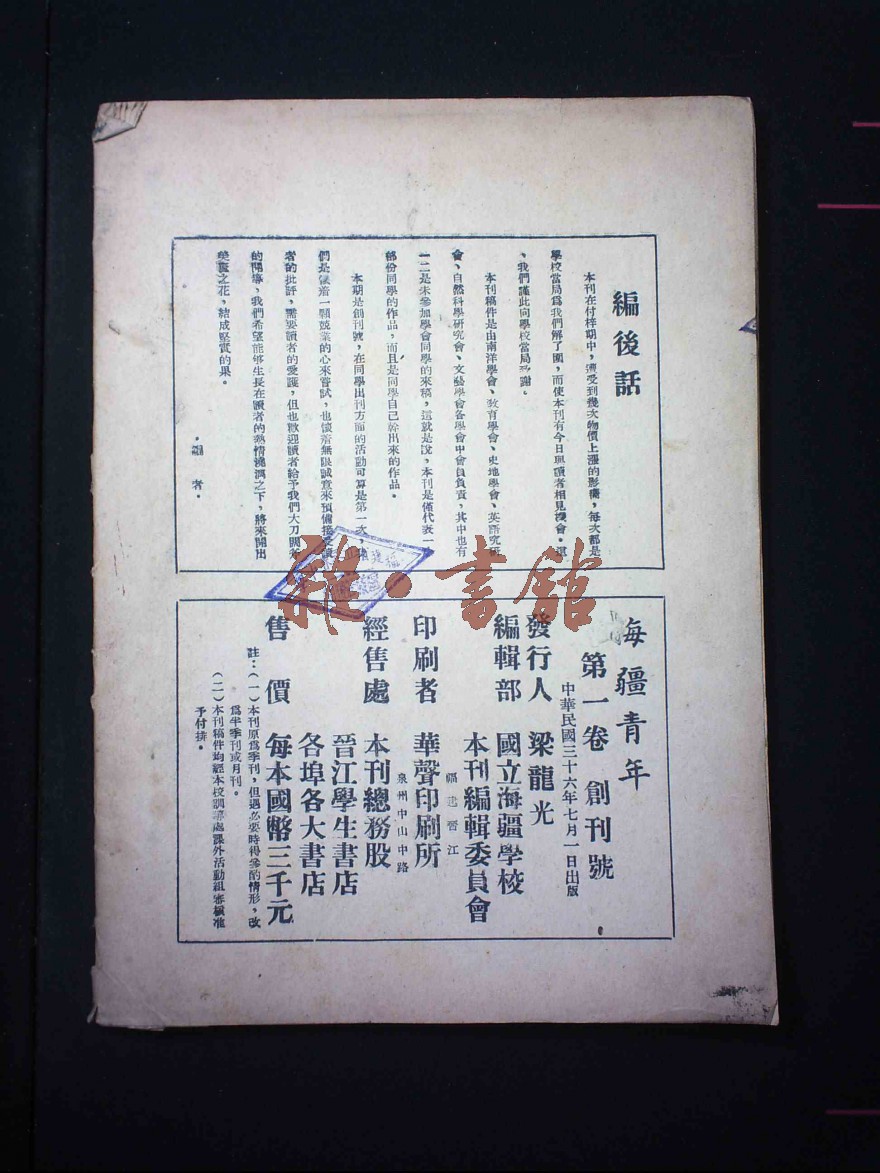 編後話
本刊在付梓期中，遭受到幾次物價上漲的影響，每次都是
學校當局爲我們解了圍，而使本刊有今日與讀者相見機會。還
、我們謹此向學校當局致謝。
本刊稿件是由南洋學會、教育學會、史地學會、英語究研
會、自然科學研究會、文藝學會各學會中會員負責，其中也有
一二是未參加學會同學的來稿，這就是說，本刊是僅代表一
部份同學的作品，而且是同學自己幹出來的作品。
本期是創刊號，在同學出刊方面的活動可算是第一次，
們是懷着一顆兢業的心來嘗試，也懷着無限誠意來預備接受讀
者的批評，需要讀者的愛護，但也歡迎讀者給予我們大刀闊斧
的開導，我們希望能够生長在讀者的熱情澆灌之下，將來開出
美麗之花，結成堅實的果。
·編者·
海疆青年
第一卷 創刊號
中華民國三十六年七月一日出版
發行人 梁龍光
編輯部 國立海疆學校
本刊編輯委員會
福建晉江
印刷者 華聲印刷所
泉州中山中路
經售處 本刊總務股
晉江學生書店
各埠各大書店
售價 每本國幣三千元
註：（一）本刊原爲季刊，但遇必要時得參酌情形，改
爲半季刊或月刊。
（二）本刊稿件均經本校訓導處課外活動組審核准
予付排。
雅·書館